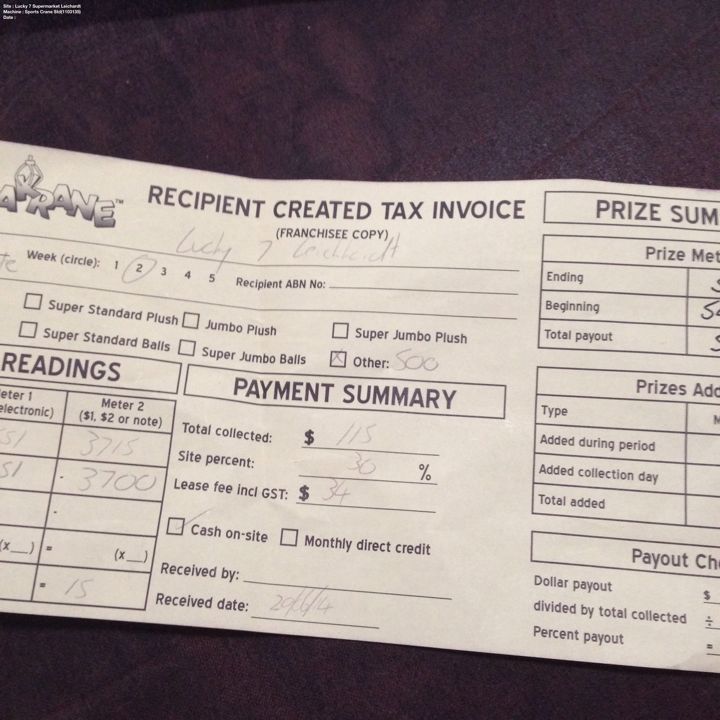 Site : Lucky 7 Supermarket Leichardt
Machine : Sports Crane Std(1103130)
Date :
RECIPIENT CREATED TAX INVOICE
(FRANCHISEE COPY)
Lucky 7 Leichhardt
Week (circle): 1 2 3 4 5
Recipient ABN No:
Super Standard Plush Jumbo Plush Super Jumbo Plush
Super Standard Balls Super Jumbo Balls Other: 500
READINGS
Meter 2
electronic) ($1, $2 or note)
3715
3700
(x__) = (x__)
= 15
PAYMENT SUMMARY
Total collected: $ 115
Site percent: 30 %
Lease fee incl GST: $ 34
Cash on-site Monthly direct credit
Received by:
Received date:
PRIZE SUM
Prize Met
Ending
Beginning
Total payout
Prizes Add
Type
Added during period
Added collection day
Total added
Payout Ch
Dollar payout $
divided by total collected ÷
Percent payout =